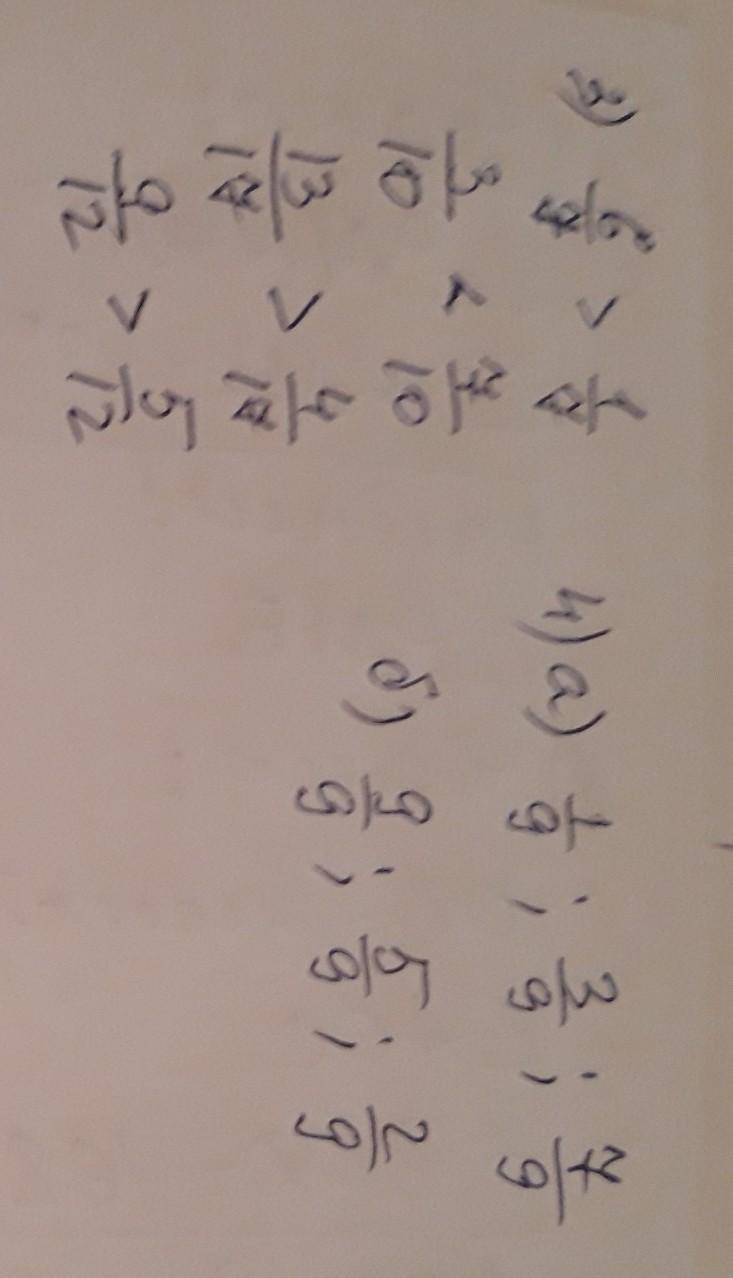 3) 6/7 > 1/7
3/10 < 7/10
13/17 > 4/17
9/12 > 5/12
4) а) 1/9 ; 3/9 ; 7/9
б) 9/9 ; 5/9 ; 2/9